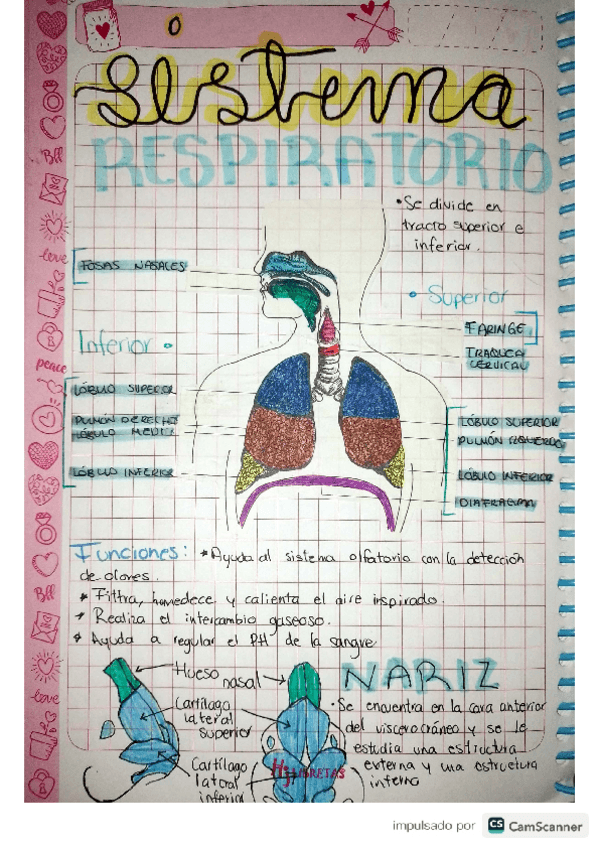 Sistema
RESPIRATORIO
•Se divide en
tracto superior e
inferior.
FOSAS NASALES
• Superior
FARINGE
TRAQUEA
CERVICAL
Inferior •
LÓBULO SUPERIOR
PULMÓN DERECHO
LÓBULO MEDIO
LÓBULO INFERIOR
LÓBULO SUPERIOR
PULMÓN IZQUIERDO
LÓBULO INFERIOR
DIAFRAGMA
Funciones: *Ayuda al sistema olfatorio con la detección
de olores.
* Filtra, humedece y calienta el aire inspirado.
* Realiza el intercambio gaseoso.
* Ayuda a regular el PH de la sangre
Hueso
nasal
Cartílago
lateral
superior
Cartílago
lateral
inferior
NARIZ
•Se encuentra en la cara anterior
del viscerocráneo y se le
estudia una estructura
externa y una estructura
interna
LIBRETAS
Bff
love
peace
Bff
love
impulsado por CS CamScanner